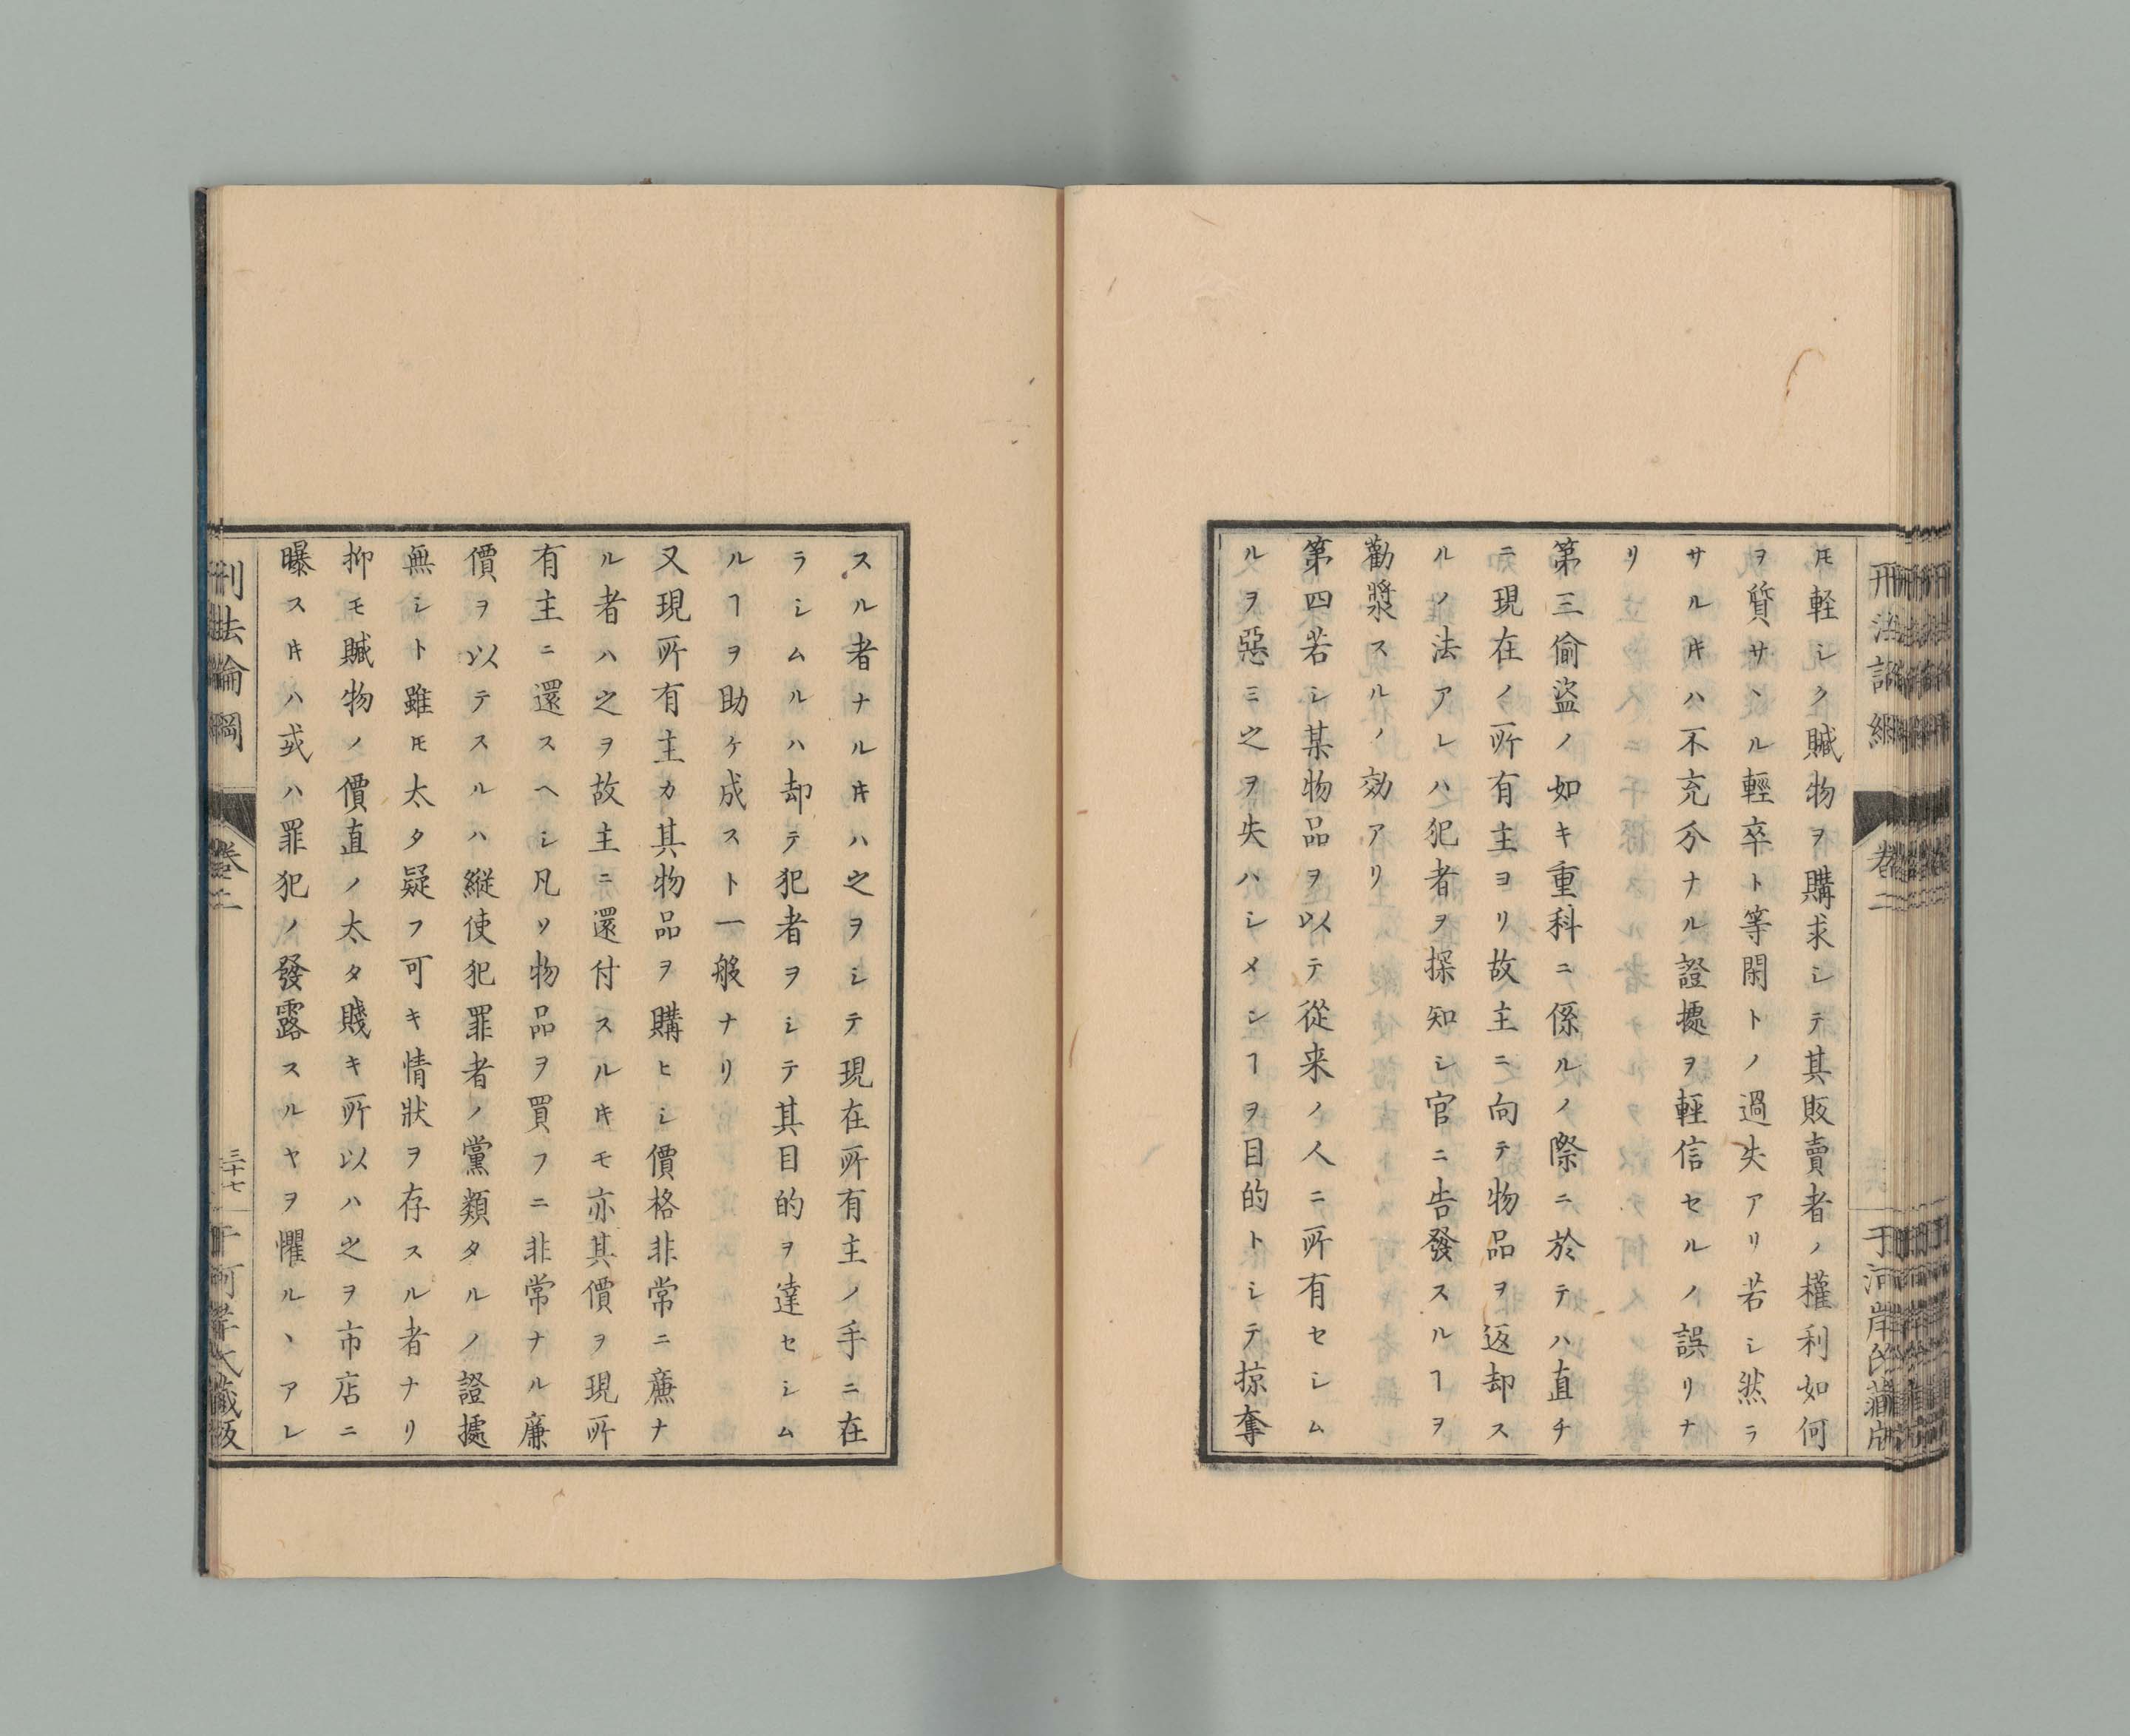 𪜈軽シク贓物ヲ購求シテ其販賣者ノ權利如何
ヲ質サヽル輕卒ト等閑トノ過失アリ若シ然ラ
サル𪜀ハ不充分ナル證據ヲ輕信セルノ誤リナ
リ
第三偷盜ノ如キ重科ニ係ルノ際ニ於テハ直チ
ニ現在ノ所有主ヨリ故主ニ向テ物品ヲ返却ス
ルノ法アレハ犯者ヲ探知シ官ニ告發スルヿヲ
勸獎スルノ効アリ
第四若シ某物品ヲ以テ從来ノ人ニ所有セシム
ルヲ惡ミ之ヲ失ハシメンヿヲ目的トシテ掠奪
スル者ナル𪜀ハ之ヲシテ現在所有主ノ手ニ在
ラシムルハ却テ犯者ヲシテ其目的ヲ達セシム
ルヿヲ助ケ成スト一般ナリ
又現所有主カ其物品ヲ購ヒシ價格非常ニ廉ナ
ル者ハ之ヲ故主ニ還付スル𪜀モ亦其價ヲ現所
有主ニ還スヘシ凡ソ物品ヲ買フニ非常ナル廉
價ヲ以テスルハ縱使犯罪者ノ黨類タルノ證據
無シト雖𪜈太タ疑フ可キ情狀ヲ存スル者ナリ
抑モ贓物ノ價直ノ太タ賤キ所以ハ之ヲ市店ニ
曝ス𪜀ハ或ハ罪犯ノ發露スルヤヲ懼ルヽアレ
刑法論綱
卷二
三十七
千河岸氏藏版